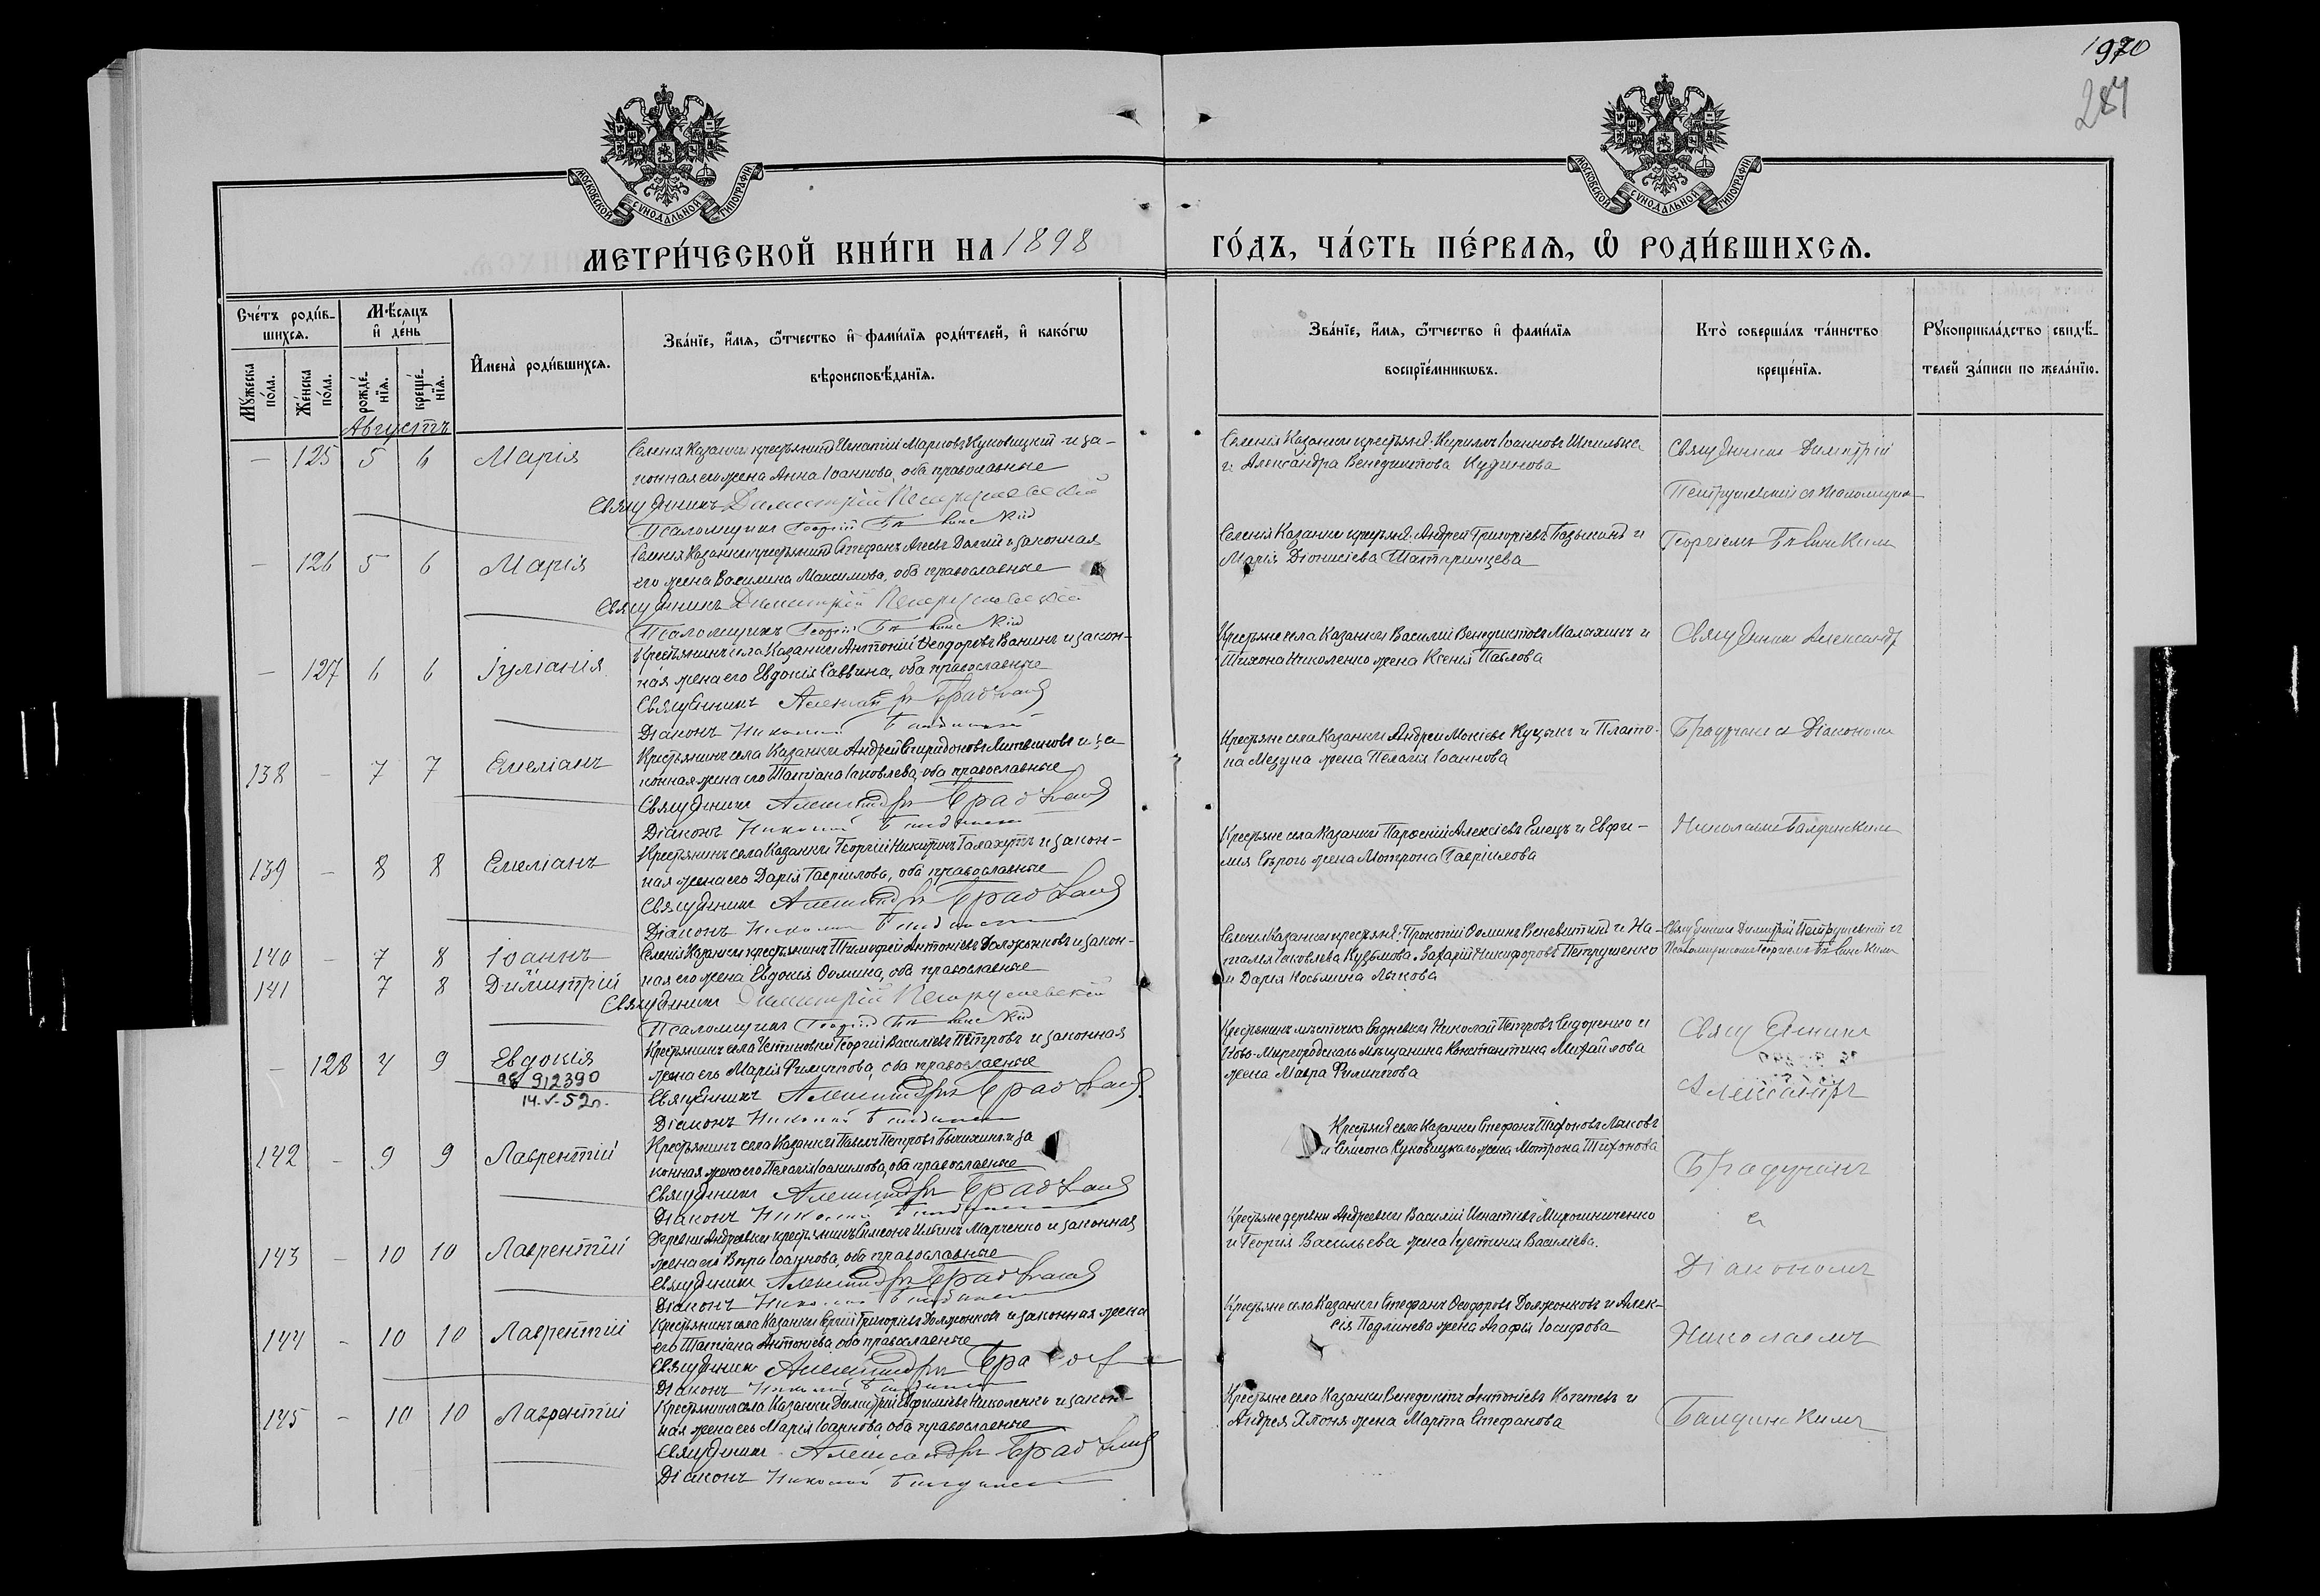 1970
284
МОСКОВСКОЙ СѴНОДАЛЬНОЙ ТИПОГРАФІИ
МОСКОВСКОЙ СѴНОДАЛЬНОЙ ТИПОГРАФІИ
МЕТРИ́ЧЕСКОЙ КНИ́ГИ НА 1898
ГО́ДЪ, ЧА́СТЬ ПЕ́РВАѦ, Ѽ РОДИ́ВШИХСѦ.
Сче́тъ роди́в-
шихсѧ.
Мѣ́сѧцъ
и҆ де́нь
Мꙋ́жеска по́ла.
Же́нска по́ла.
рожде́-нїѧ.
креще́-нїѧ.
И҆мена̀ роди́вшихсѧ.
Зва́нїе, и҆́мѧ, ѻ҆́тчество и҆ фами́лїѧ роди́телей, и҆ како́гѡ
вѣроисповѣ́данїѧ.
Зва́нїе, и҆́мѧ, ѻ҆́тчество и҆ фами́лїѧ
воспрїе́мникѡвъ.
Кто̀ соверша́лъ та́инство
креще́нїѧ.
Рꙋкоприкла́дство свидѣ́-
телей за́писи по жела́нїю.
Августъ
— 125 5 6 Марія
Селенія Казанки крестьянинъ Игнатій Марковъ Куковицкій и за-
конная его жена Анна Іоаннова, оба православные
Священникъ Димитрій Петрушевскій
Псаломщикъ Георгій
Селенія Казанки крестьяне: Кириллъ Іоанновъ Шпилька
и Александра Венедиктова Кудинова
Священникъ Димитрій
Петрушевскій съ псаломщик.
— 126 5 6 Марія
Селенія Казанки крестьянинъ Стефанъ Агеевъ Долгій и законная
его жена Василиса Максимова, оба православные
Священникъ Димитрій Петрушевскій
Псаломщикъ Георгій
Селенія Казанки крестьяне: Андрей Григоріевъ и
Марія Діонисіева Шатаринцева
Георгіемъ
— 127 6 6 Іуліанія
Крестьянинъ села Казанки Антоній Ѳеодоровъ Ванинъ и закон-
ная жена его Евдокія Саввина, оба православные
Священникъ Александръ Брадучанъ
Діаконъ Николай
Крестьяне села Казанки Василій Венедиктовъ Малахинъ и
Тихона Николенко жена Ксенія Павлова
Священникъ Александр
138 — 7 7 Емеліанъ
Крестьянинъ села Казанки Андрей Спиридоновъ Литвиновъ и за-
конная жена его Татіана Іаковлева, оба православные
Священникъ Александръ Брадучанъ
Діаконъ Николай
Крестьяне села Казанки Андрей Мокіевъ Куцакъ и Плато-
на Мезуна жена Пелагія Іоаннова
Брадучанъ съ Діакономъ
139 — 8 8 Емеліанъ
Крестьянинъ села Казанки Георгій Никитинъ Галахутъ и закон-
ная жена его Дарія Гавриилова, оба православные
Священникъ Александръ Брадучанъ
Діаконъ Николай
Крестьяне села Казанки Парѳеній Алексіевъ Емецъ и Евфи-
мія Сѣраго жена Мотрона Гавріилова
Николаемъ
140 — 7 8 Іоаннъ
141 7 8 Димитрій
Селенія Казанки крестьянинъ Тимоѳей Антоніевъ Должонковъ и закон-
ная его жена Евдокія Ѳомина, оба православные
Священникъ Димитрій Петрушевскій
Псаломщикъ Георгій
Селенія Казанки крестьяне: Прокопій Ѳоминъ Веневитинъ и На-
талія Іаковлева Кузьмова. Захарій Никифоровъ Петрушенко
и Дарія Косьмина Лыкова
Священникъ Димитрій Петрушевскій съ
Псаломщикомъ Георгіемъ
— 128 4 9 Евдокія
912390
14.V.52г.
Крестьянинъ села Устиновки Георгій Василіевъ Петровъ и законная
жена его Марія Филиппова, оба православные
Священникъ Александръ Брадучанъ
Діаконъ Николай
Крестьянинъ мѣстечка Николай Петровъ Сидоренко и
Ново-Миргородскаго мѣщанина Константина Михайлова
жена Мавра Филиппова
Священникъ
Александръ
142 — 9 9 Лаврентій
Крестьянинъ села Казанки Павелъ Петровъ и за
конная жена его Пелагія Іоакимова, оба православные
Священникъ Александръ Брадучанъ
Діаконъ Николай
Крестьяне села Казанки Стефанъ Тихоновъ Лыковъ
и Симеона Куковицкаго жена Мотрона Тихонова
Брадучанъ
143 — 10 10 Лаврентій
Деревни Андреевки крестьянинъ Симеонъ Ильинъ Марченко и законная
жена его Вѣра Іоаннова, оба православные
Священникъ Александръ Брадучанъ
Діаконъ Николай
Крестьяне деревни Андреевки Василій Игнатіевъ Мирошниченко
и Георгія Васильева жена Іустинія Василіева.
съ
Діакономъ
144 — 10 10 Лаврентій
Крестьянинъ села Казанки Сергій Григоріевъ Должонковъ и законная жена
его Татіана Антоніева, оба православные
Священникъ Александръ
Діаконъ Николай
Крестьяне села Казанки Стефанъ Ѳеодоровъ Должонковъ и Алек-
сія Подлинева жена Агафія Іосифова
Николаемъ
145 — 10 10 Лаврентій
Крестьянинъ села Казанки Димитрій Евфиміевъ Николенко и закон-
ная жена его Марія Іоаннова, оба православные
Священникъ Александръ Брадучанъ
Діаконъ Николай
Крестьяне села Казанки Венедиктъ Антоніевъ Коптевъ и
Андрея Хлоня жена Марта Стефанова